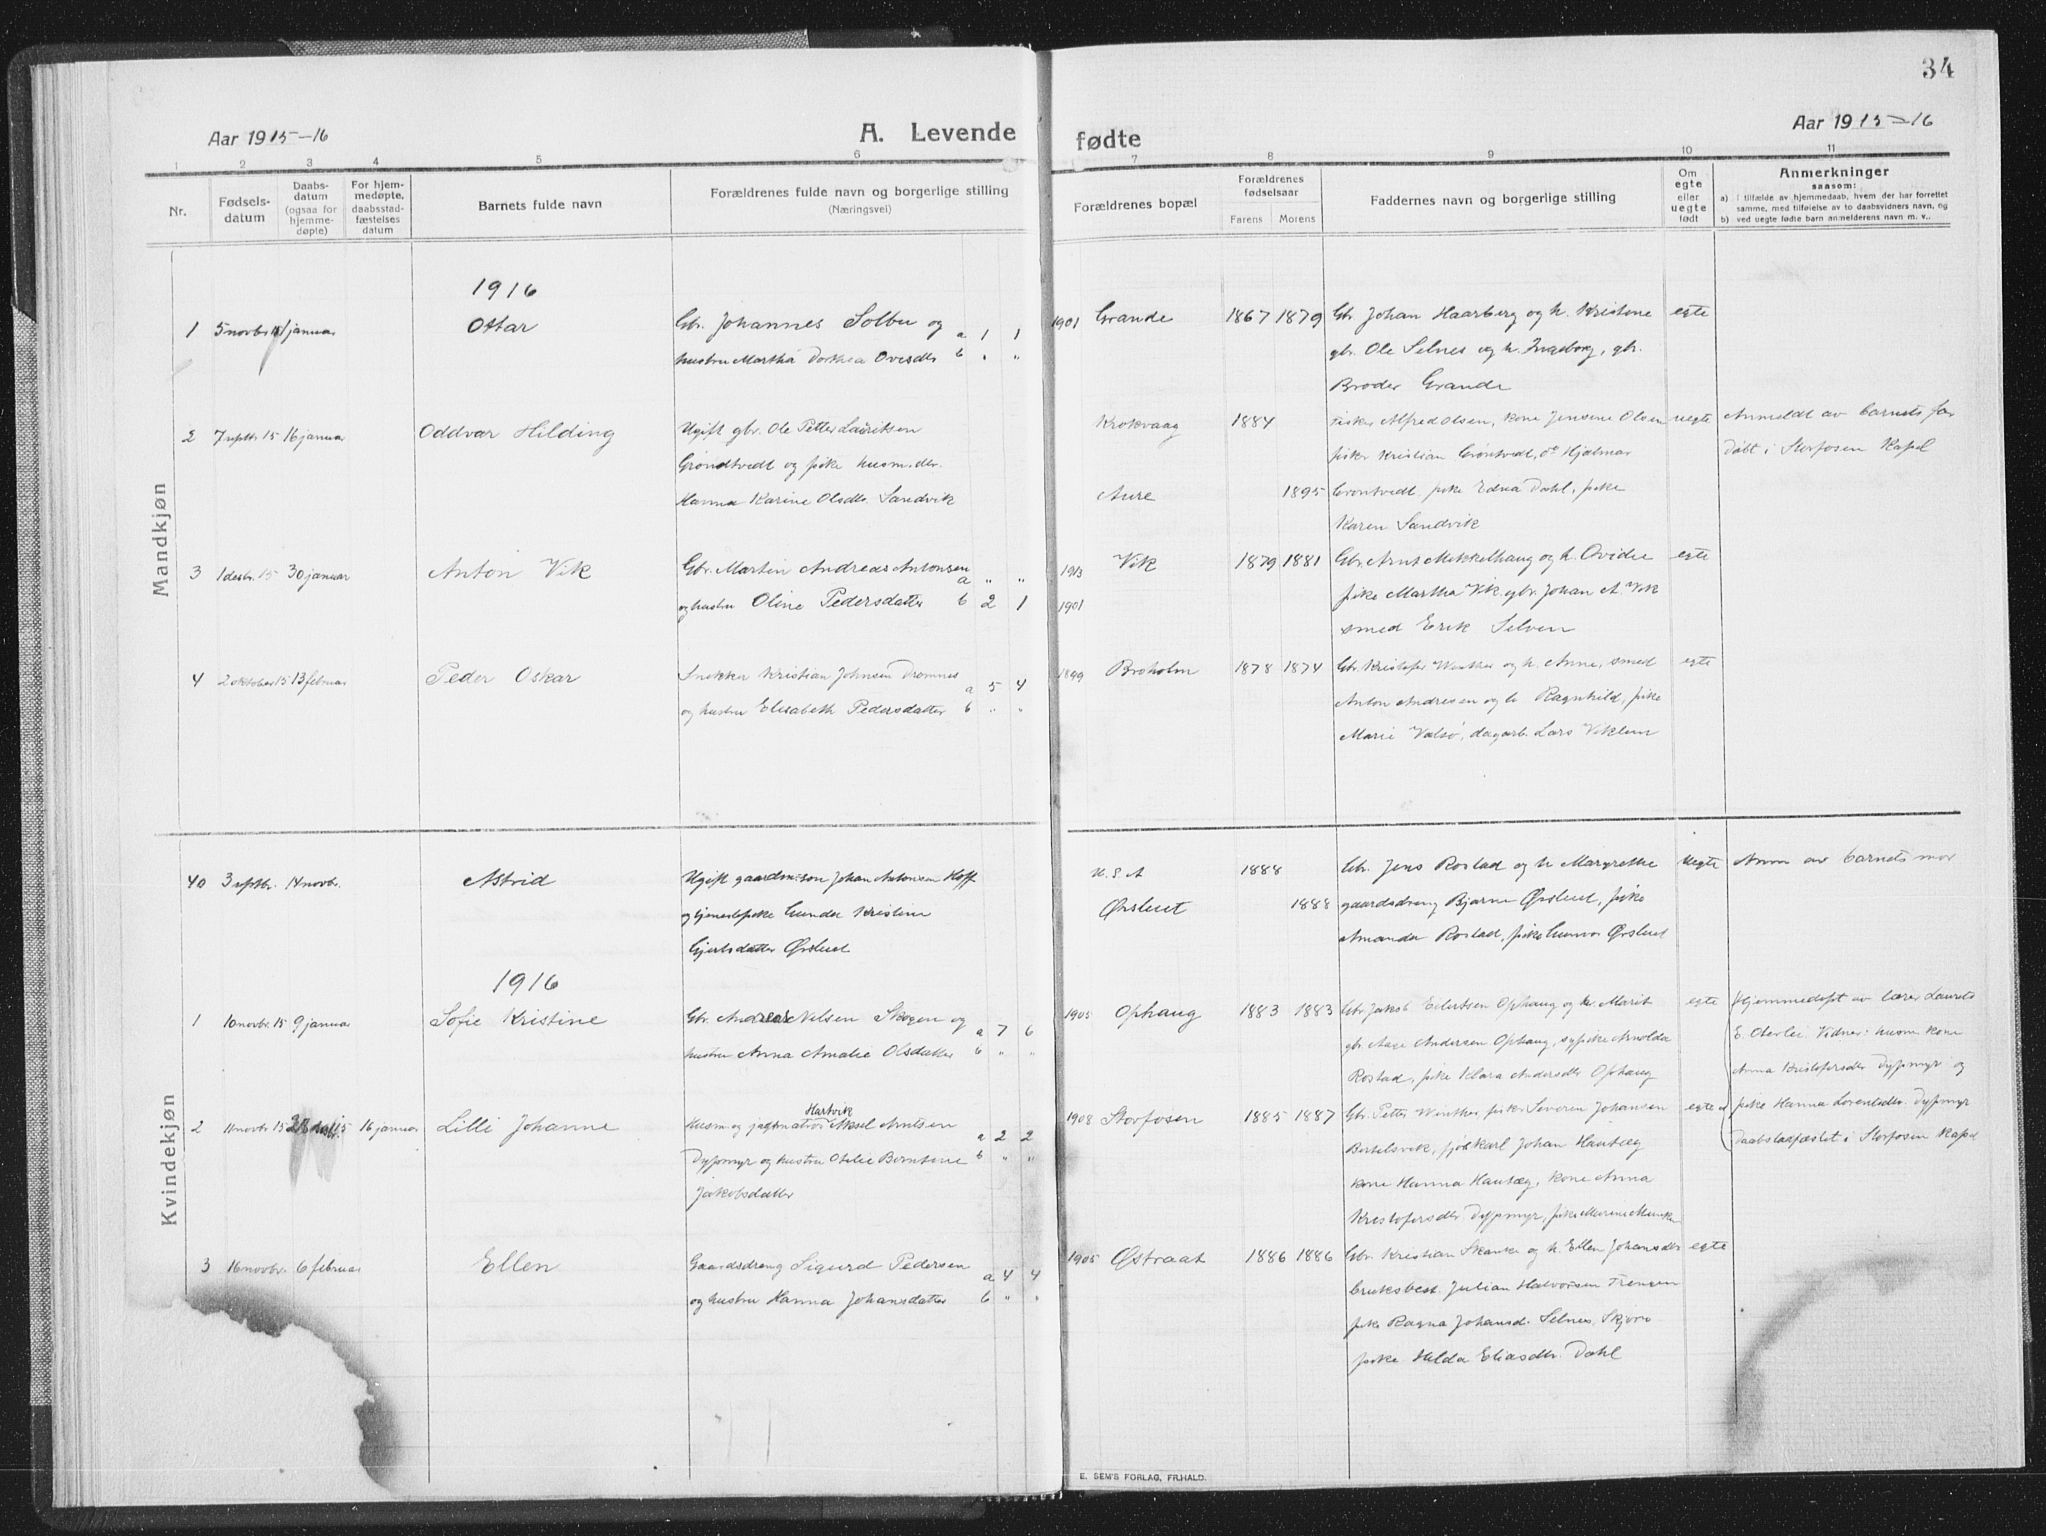 34
Aar 1915-16
A. Levende
fødte
Aar 1915-16
1 2 3 4 5 6
7 8 9 10 11
Nr.
Fødsels-
datum
Daabs-
datum
(ogsaa for
hjemme-
døpte)
For hjem-
medøpte,
daabsstad-
fæstelses
datum
Barnets fulde navn
Forældrenes fulde navn og borgerlige stilling
(Næringsvei)
Forældrenes bopæl
Forældrenes
fødselsaar
Farens Morens
Faddernes navn og borgerlige stilling
Om
egte
eller
uegte
født
Anmerkninger
saasom:
a) i tilfælde av hjemmedaab, hvem der har forrettet
samme, med tilføielse av to daabsvidners navn, og
b) ved uegte fødte barn anmelderens navn m. v..
Mandkjøn
1916
1 5 novbr januar Ottar Gbr. Johannes Solbu og a 1 1 1901 Grande 1867 1879 Gbr Johan Haarberg og h. Kristine egte
hustru Martha Dorthea Ovesdtr b " " gbr. Ole Selnes og h. Ingeborg, gbr.
Broder Grande
2 7 septbr 15 16 januar Oddvar Hilding Ugift gbr. Ole Petter Lauritsen Krokvaag 1884 Fisker Alfred Olsen, kone Jensine Olsen uegte Anmeldt av barnets far
Grøndtvedt og pike husm.dtr. fisker Kristian Grøntvedt, do Hjalmar Døbt i Storfosen Kapel
Hanna Karine Olsdtr Sandvik Aure 1895 Grøntvedt pike Edna Dahl, pike
Karen Sandvik
3 1 desbr. 15 30 januar Anton Vik Gbr. Martin Andreas Antonsen a " " 1913 Vik 1879 1881 Gbr. Arnt Mikkelhaug og h. Ovidie egte
og hustru Oline Pedersdatter b 2 1 1901 pike Martha Vik. gbr. Johan A. Vik
smed Erik Selven
4 2 oktober 15 13 februar Peder Oskar Snekker Kristian Johnsen Dromnes a 5 4 1899 Broholm 1878 1874 Gbr Kristofer Winther og h. Anne, smed egte
og hustru Elisabeth Pedersdatter b " " Anton Andresen og h Ragnhild, pike
Marie Valsø, dagarb. Lars Viklem
Kvindekjøn
40 3 septbr. 14 novbr. Astrid Ugift gaardm.søn Johan Antonsen Hoff U.S.A 1888 Gbr. Jens Rostad og h Margrethe uegte Anm av barnets mor
og tjenestepike Gunda Kristine Ørslent 1888 gaardsdreng Bjarne Ørslent, pike
Gjertsdatter Ørslent Amanda Rostad, pike Gunvor Ørslent
1916
1 10 novbr. 15 9 januar Sofie Kristine Gbr. Andreas Nilsen Skogen og a 7 6 1905 Ophaug 1883 1883 Gbr Jakob Eilertsen Ophaug og h. Marit egte Hjemmedøpt av lærer Laurits
hustru Anna Amalie Olsdatter b " " gbr. Aage Andersen Ophaug, sypike Arnolda E. Oterlei. Vidner: husm kone
Rostad, pike Klara Andersdtr Ophaug Anna Kristofersdtr Dypmyr og
2 11 novbr 15 15 16 januar Lilli Johanne Husm og Hartvik Aksel Arntsen a 2 2 1908 Storfosen 1885 1887 Gbr. Petter Winther, fisker Severin Johansen egte pike Hanna Lorentsdtr. Dypmyr
Dypmyr og hustru Otelie Berntine b " " Bertilsvik, Johan Hautæg Daabstadfæstet i Storfosen Kapel
Jakobsdatter kone Hanna Hautæg, kone Anna
Kristofersdtr. Dypmyr, pike
3 16 novbr. 6 februar Ellen Gaardsdreng Sigurd Pedersen a 4 4 1905 Østraat 1886 1886 Gbr. Kristian Skanke og h. Ellen Johansdtr egte
og hustru Hanna Johansdatter b " " bruksbest. Julian Halvorsen
pike Ragna Johansd. Selnes,
pike Hilda Eliasdtr. Dahl
E. SEM'S FORLAG, FR.HALD.